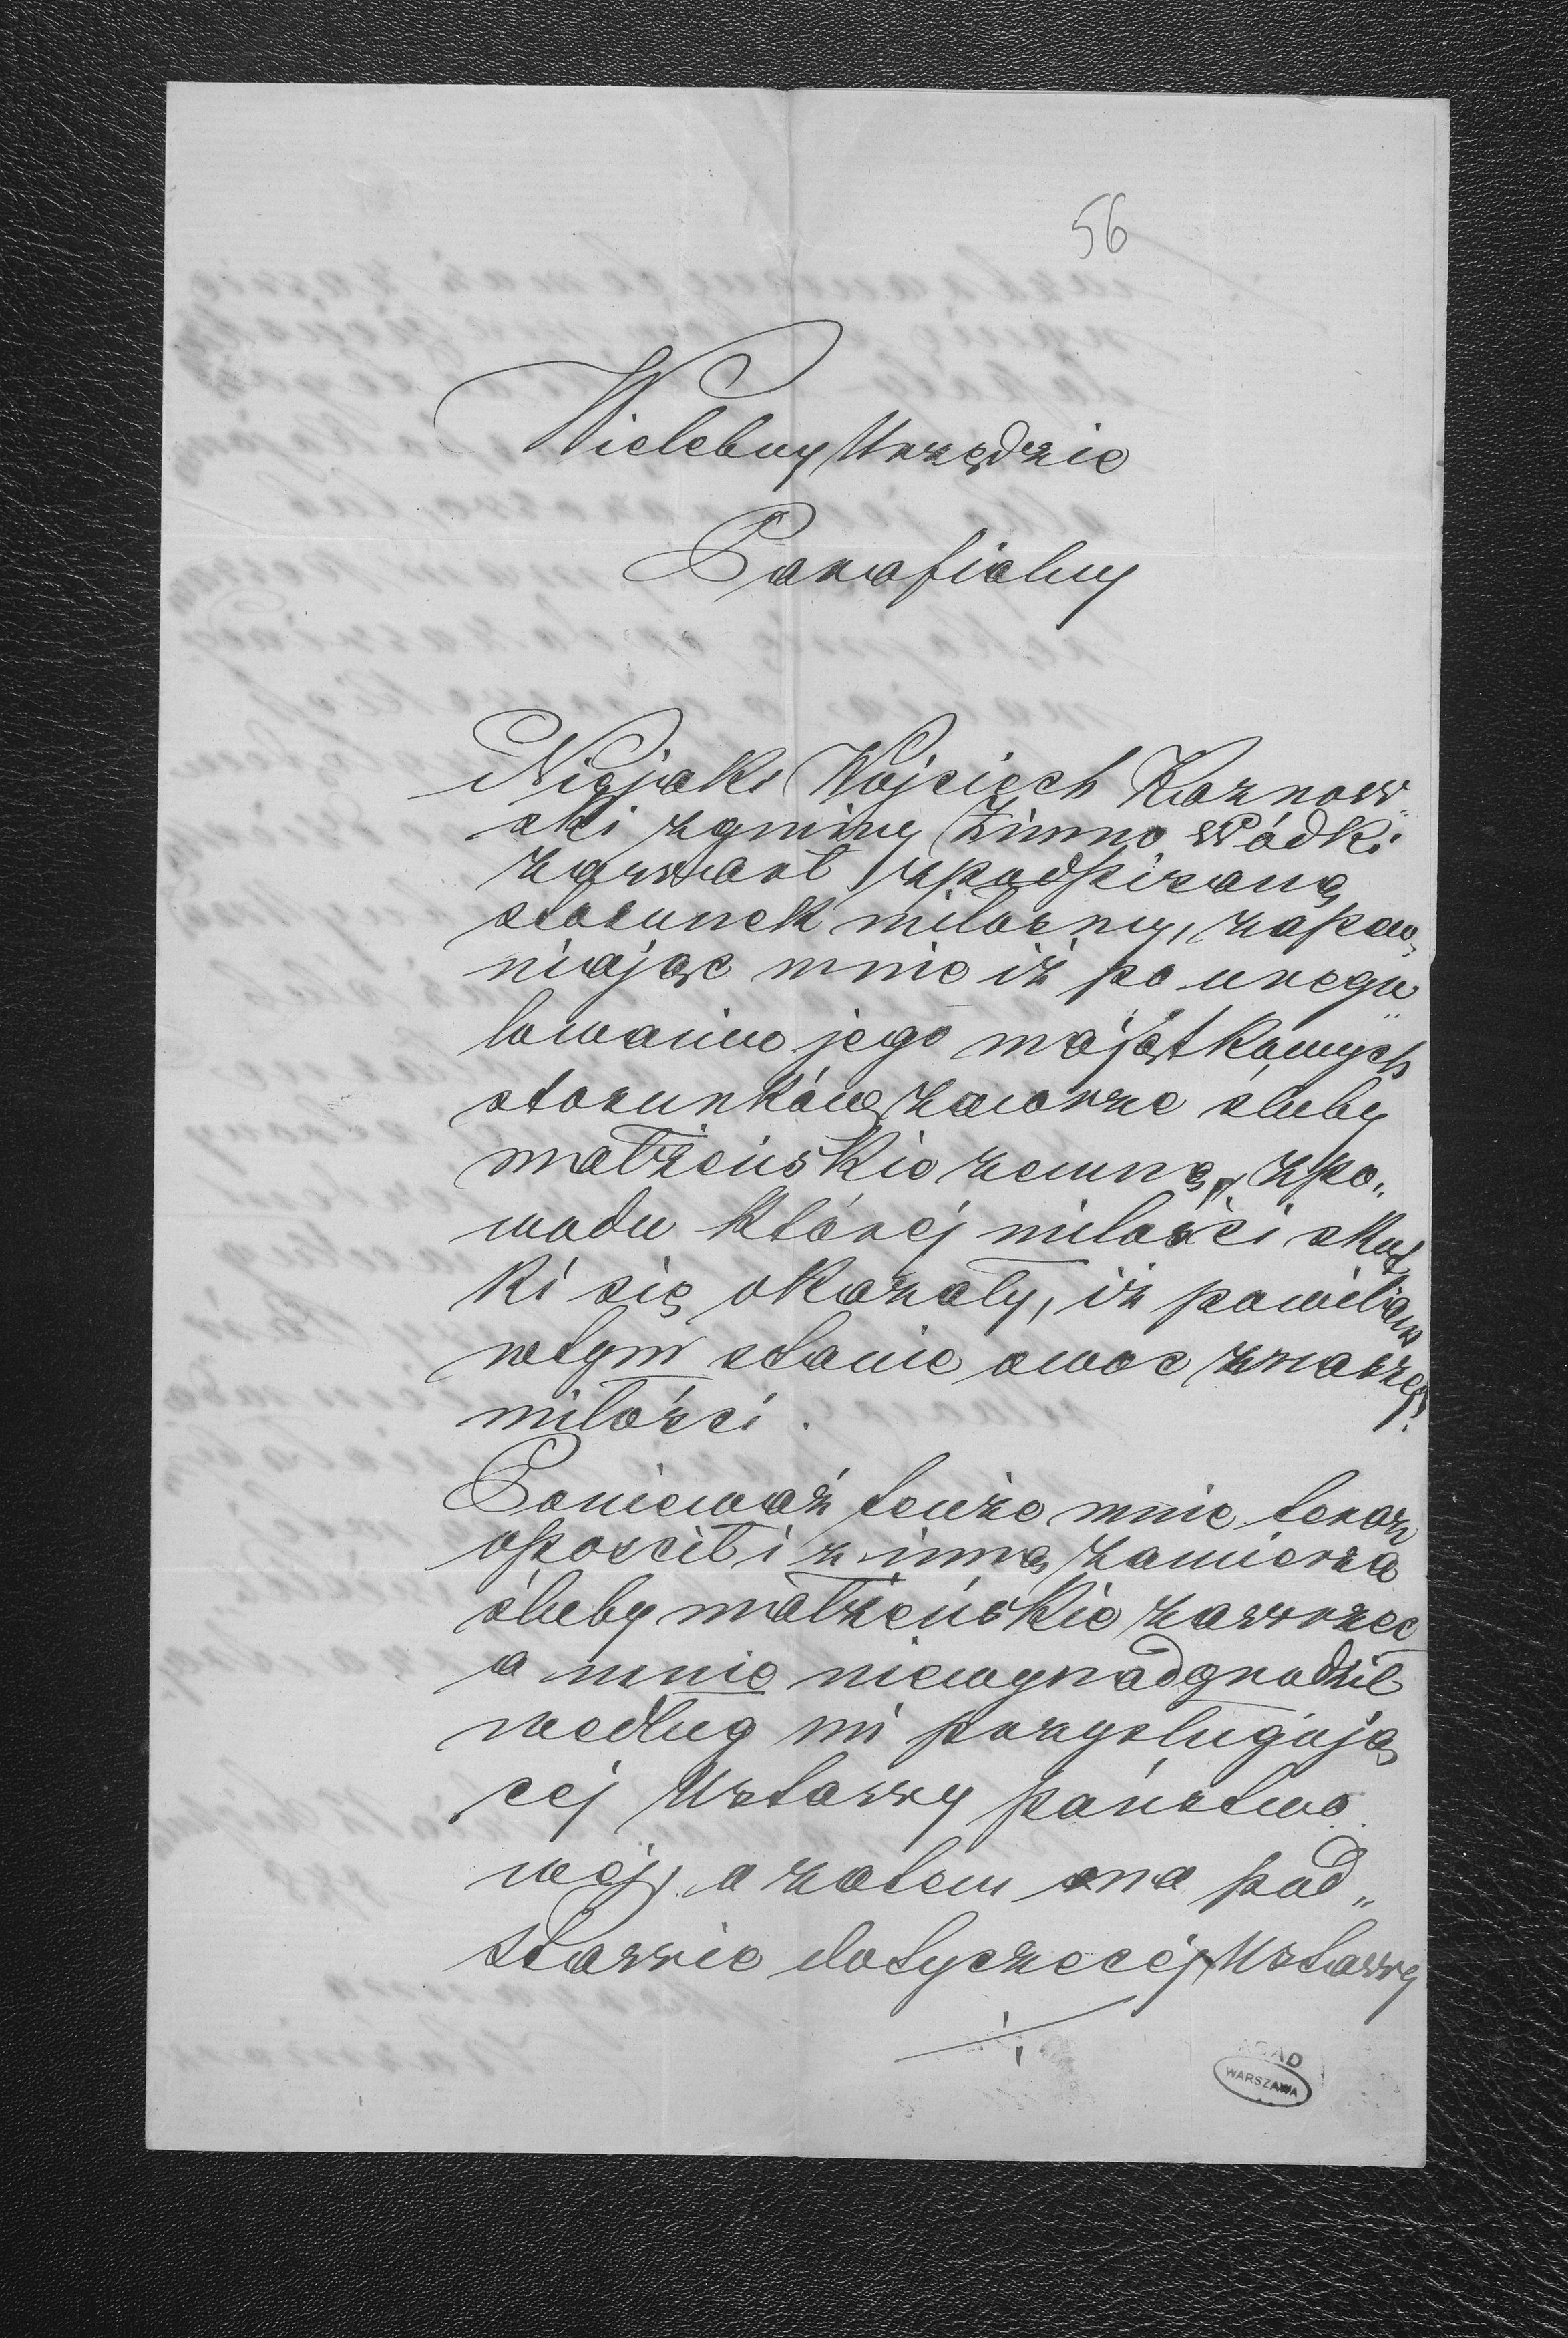 56
Wielebny Urzędzie
Parafialny
Niejaki Wojciech Kaznow„
ski z gminy Zimno Wódki
zawarł z podpisaną
stosunek miłosny, zapew„
niając mnie iż po uregu„
lowaniu jego majątkowych
stosunków zawrze śluby
małżeńskie zemną, z po„
wodu której miłości skut
ki się okazały, iż powiłam
wtym stanie owoc z naszej
miłości.
Ponieważ tenże mnie teraz
opościł i z inną zamierza
śluby małżeńskie zawrzec
a mnie niewynadgrodził
według mi przysługują
cej Ustawy państwo
wéj, a zatem ona pod„
stawie dotyczecéj Ustawy
./.
AGAD
WARSZAWA